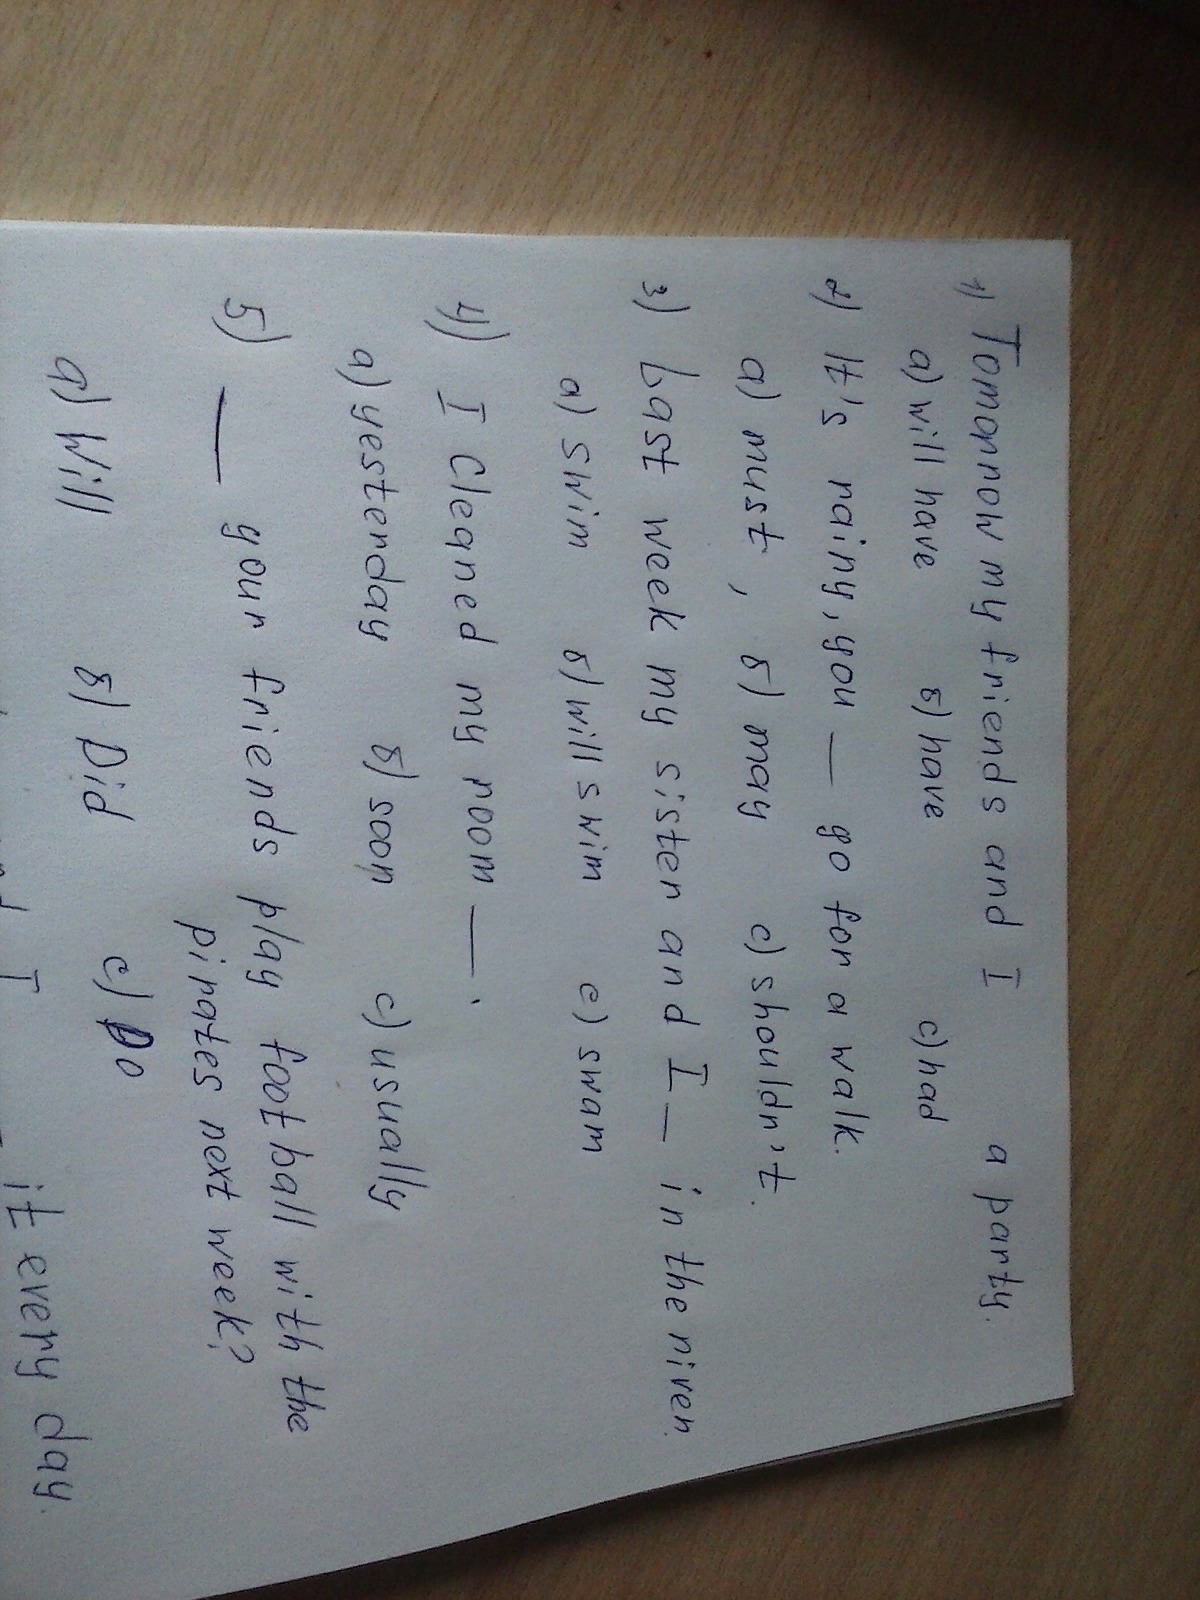 1) Tomorrow my friends and I a party.
a) will have б) have c) had
2) It's rainy, you — go for a walk.
a) must, б) may c) shouldn't.
3) Last week my sister and I — in the river.
a) swim б) will swim c) swam
4) I cleaned my room — .
a) yesterday б) soon c) usually
5) — your friends play football with the
pirates next week?
a) Will б) Did c) Do
I — it every day.